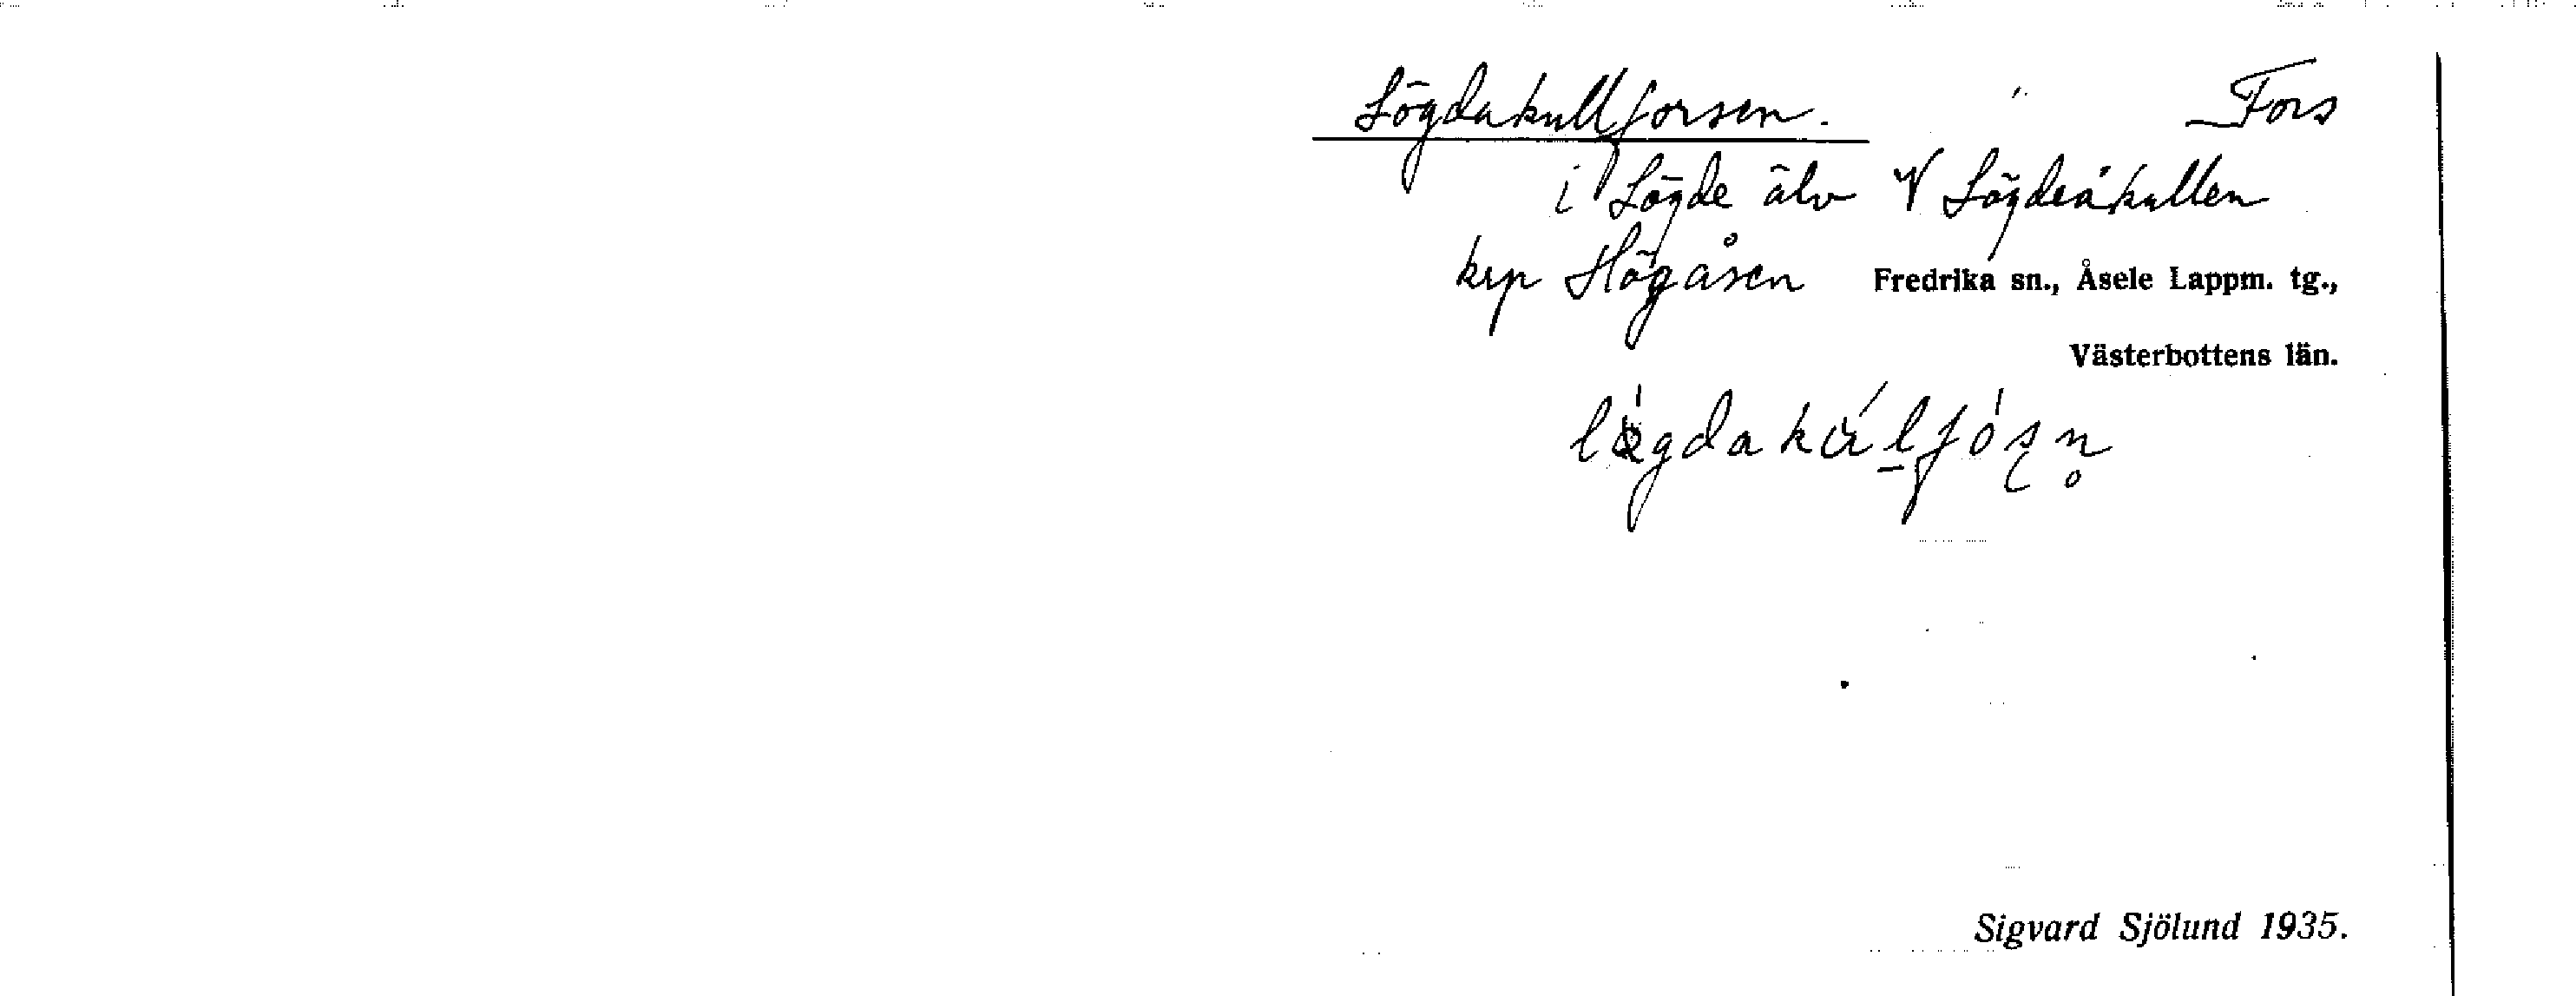 Lögdakullforsen. Fors
i Lögde älv V Lögdeåkullen
krp Högåsen Fredrika sn., Åsele Lappm. tg.,
Västerbottens län.
Sigvard Sjölund 1935.